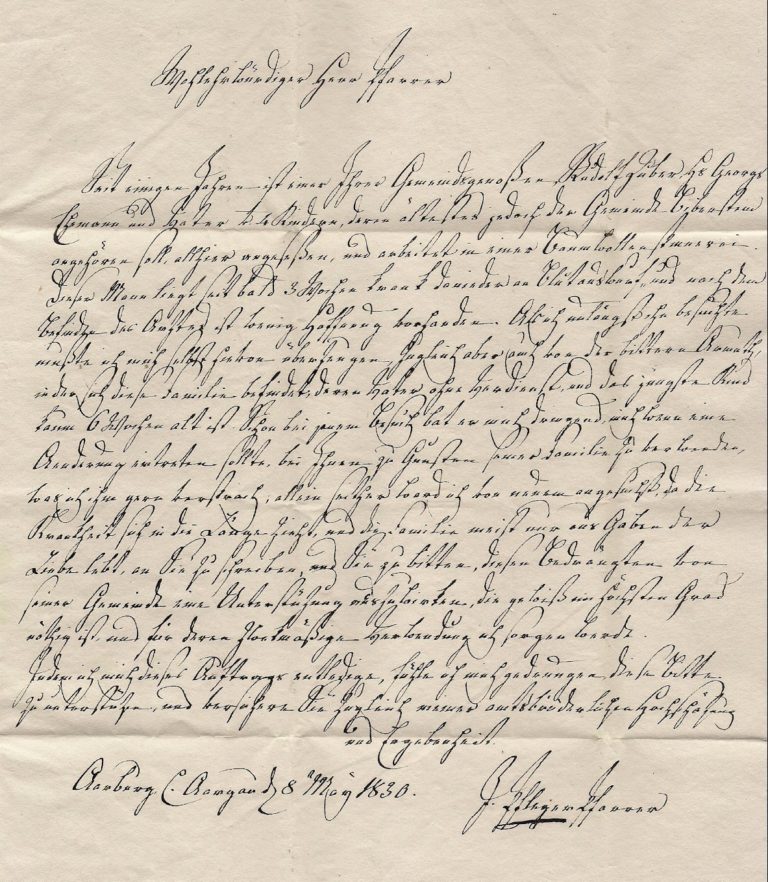 Wohlehrwürdiger Herr Pfarrer
Seit einigen Jahren ist einer Ihrer Gemeindsgenoßen Rudolf Huber, Hs Georgs
Ehmann und Vater v. 4 Kindern, deren ältestes jedoch der Gemeinde Bibenstein
angehören soll, allhier angeseßen, und arbeitet in einer Baumwollenspinnerei.
Dieser Mann liegt seit bald 3 Wochen krank danieder an Blutauswurf, und nach dem
Befinden des Arztes ist wenig Hoffnung vorhanden. Als ich unlängst ihn besuchte
mußte ich mich selbst hievon überzeugen, zugleich aber auch von der bittern Armuth,
in der sich diese Familie befindet, deren Vater ohne Verdienst, und das jüngste Kind
kaum 6 Wochen alt ist. Schon bei jenem Besuch bat er mich dringend, mich wenn eine
Aenderung eintreten sollte, bei Ihnen zu Gunsten seiner Familie zu verwenden,
was ich ihm gern versprach, allein seither ward ich von neuem angesucht, da die
Krankheit sich in die Länge zieht, und die Familie meist nur aus Gaben der
Liebe lebt, an Sie zu schreiben, und Sie zu bitten, diesen Bedrängten von
seiner Gemeinde eine Unterstüzung auszuwirken, die gewiß im höchsten Grad
nöthig ist, und für deren zwekmäßige Verwendung ich sorgen werde.
Indem ich mich dieses Auftrags entledige, fühle ich mich gedrungen, diese Bitte
zu unterstüzen, und versichere Sie zugleich meiner amtsbrüderlichen Hochschäzung
und Ergebenheit.
Aarburg C. Aargau d 8 May 1830.
J. Pfleger Pfarrer